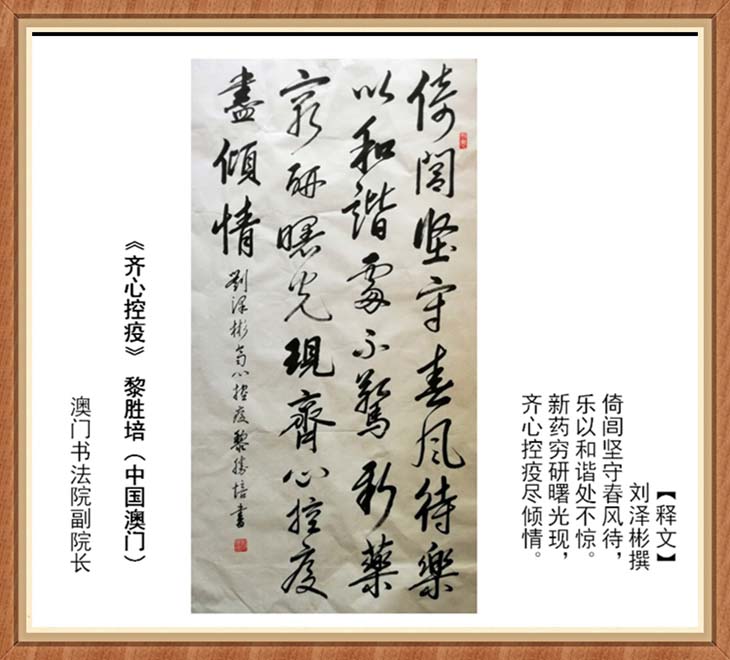 【释文】
刘泽彬撰
倚闾坚守春风待，
乐以和谐处不惊。
新药穷研曙光现，
齐心控疫尽倾情。
倚闾坚守春风待樂
以和諧處不驚新藥
窮研曙光現齊心控疫
盡傾情
劉澤彬 齐心控疫 黎勝培書
《齐心控疫》 黎胜培（中国澳门）
澳门书法院副院长